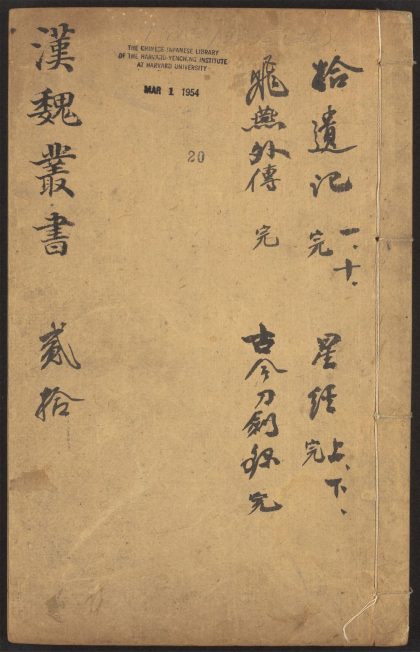 拾遺記 一、十、
完
星經 上、下、
完
飛燕外傳 完
古今刀劍錄 完
THE CHINESE-JAPANESE LIBRARY
OF THE HARVARD-YENCHING INSTITUTE
AT HARVARD UNIVERSITY
MAR 1 1954
20
漢魏叢書 貳拾